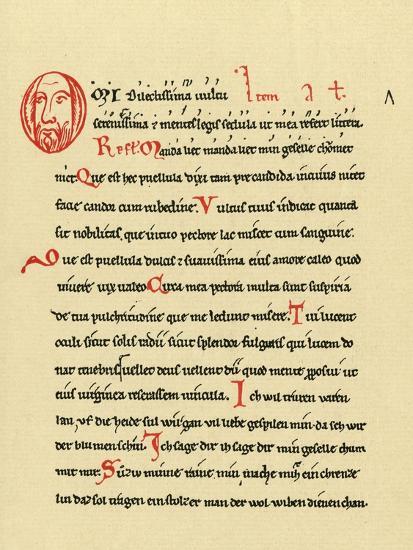 Omi dilectissima uultu Item a t
serenissima ⁊ mentes legis sedula ut mea refert littera
Refl. Manda liet manda liet min geselle chomet
niet. Que est hec puellula dixi tam precandida in cuius nitet
facie candor cum rubedine. Uultus tuus indicat quanta
sit nobilitas que in tuo pectore lac miscet cum sanguine.
Que est puellula dulcis ⁊ suauissima eius amore caleo quod
uiuere uix ualeo Circa mea pectora multa sunt suspiria
de tua pulchritudine que me ledunt misere. Tui lucent
oculi sicut solis radii sicut splendor fulguris qui lucem do
nat tenebris uellet deus uellent dii quod mente proposui ut
eius uirginea reserassem uincula. Ich wil truren uaren
lan, uf die heide sul wir gan uil liebe gespilen min da seh wir
der blumen schin. Ich sage dir ih sage dir min geselle chum
mit mir. Suziv minne raine min mache mih ein chrenze
lin daz sol tragen ein stolzer man der wol wiben dienen chan.